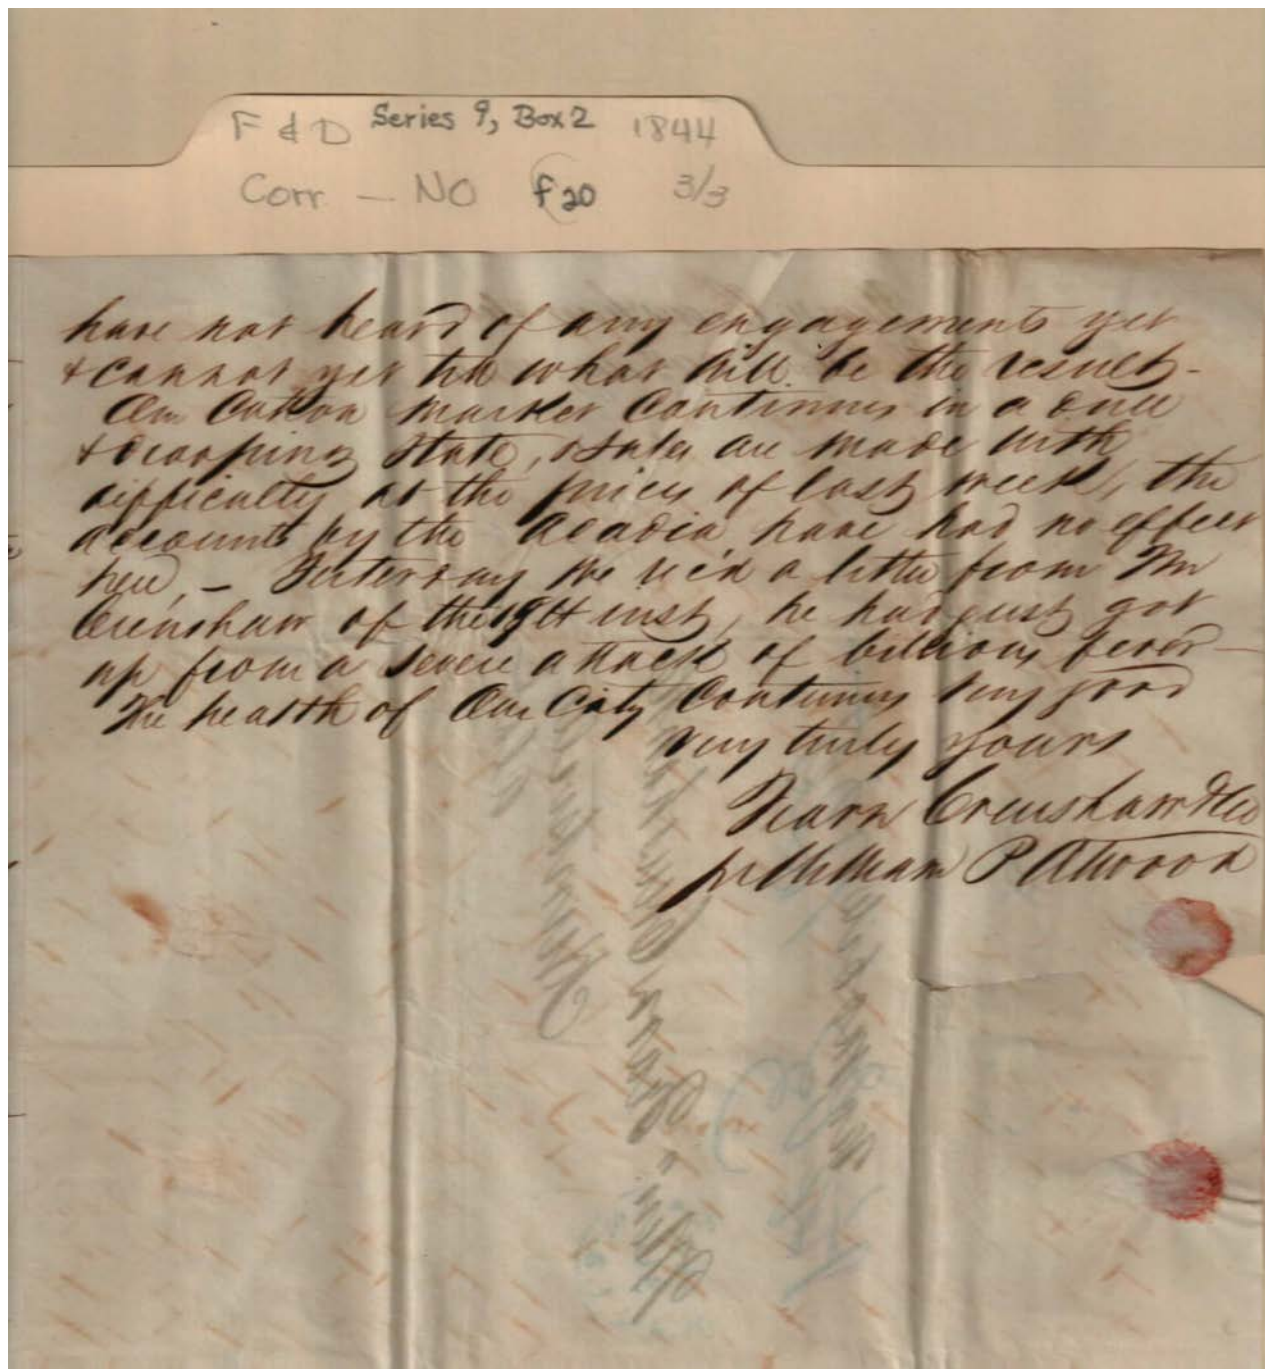 F & D Series 9, Box 2 1844
Corr — NO f20 3/3
have not heard of any engagements yet
& cannot yet tell what will be the result -
Our Cotton Market Continues in a dull
& drooping State, & sales are made with
difficulty at the prices of last week, the
accounts by the Acadia have had no effect
here, - Yesterday we rec'd a letter from Mr
Crenshaw of the inst, he had just got
up from a severe attack of billious fever -
The health of Our City Continues very good
Very truly yours
Fearn Crenshaw & Co
pr William P Atwood